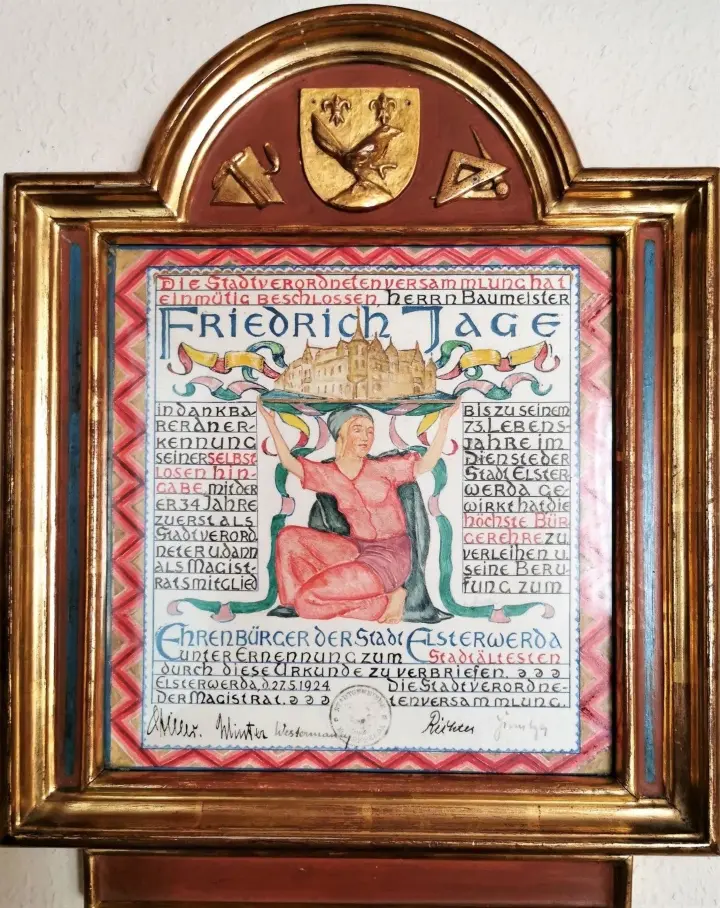 Die Stadtverordnetenversammlung hat
einmütig beschlossen, Herrn Baumeister
Friedrich Jage
in dankba
rer Aner-
kennung
seiner selbst
losen Hin-
gabe, mit der
er 34 Jahre
zuerst als
Stadtverord
neter u. dann
als Magist-
ratsmitglied
bis zu seinem
73. Lebens-
jahre im
Dienste der
Stadt Elster
werda ge-
wirkt hat die
höchste Bür
gerehre zu
verleihen u.
seine Beru-
fung zum
Ehrenbürger der Stadt Elsterwerda
unter Ernennung zum Stadtältesten
durch diese Urkunde zu verbriefen.
Elsterwerda, d. 27.5.1924
Der Magistrat.
Die Stadtverordne-
tenversammlung.
Winter Westermann